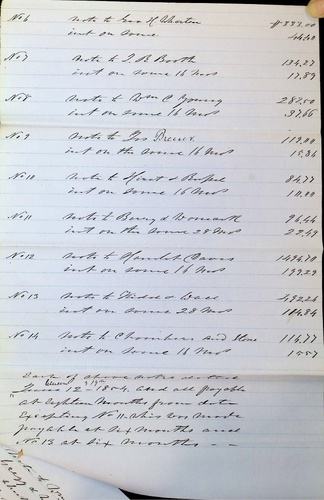 No 6 note to Geo H Wharton $333.00
int on same 44.40
No 7 note to J B Booth 134.27
int on same 16 Mos 17.89
No 8 note to Wm C Young 282.50
int on same 16 Mos 37.66
No 9 note to Jos Brewer 119.00
int on the same 16 Mos 15.86
No 10 note to Hart & 84.77
int on same 16 Mos
No 11 note to Berry & 96.44
int on the same 28 Mos 22.49
No 12 note to Hamlet 1494.70
int on same 16 Mos 199.29
No 13 note to Kidd & Wall
int on same 28 Mos 114.84
No 14 note to Chambers and Stone 116.77
int on same 16 Mos 15.57
Each of above notes dated
June 12 - 1854 and all payable
at Eighteen Months from date
Excepting No 11. this was made
payable at Six Months and
No 13 at Six months - -